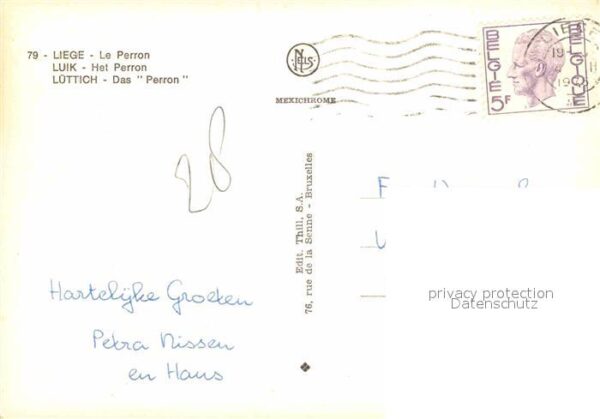 79 - LIEGE - Le Perron
LUIK - Het Perron
LÜTTICH - Das "Perron"
NELS
MEXICHROME
BELGIE
BELGIQUE
5F
28
Edit. Thill. S.A.
76, rue de la Senne - Bruxelles
Hartelijke Groeten
Petra Nissen
en Hans
privacy protection
Datenschutz